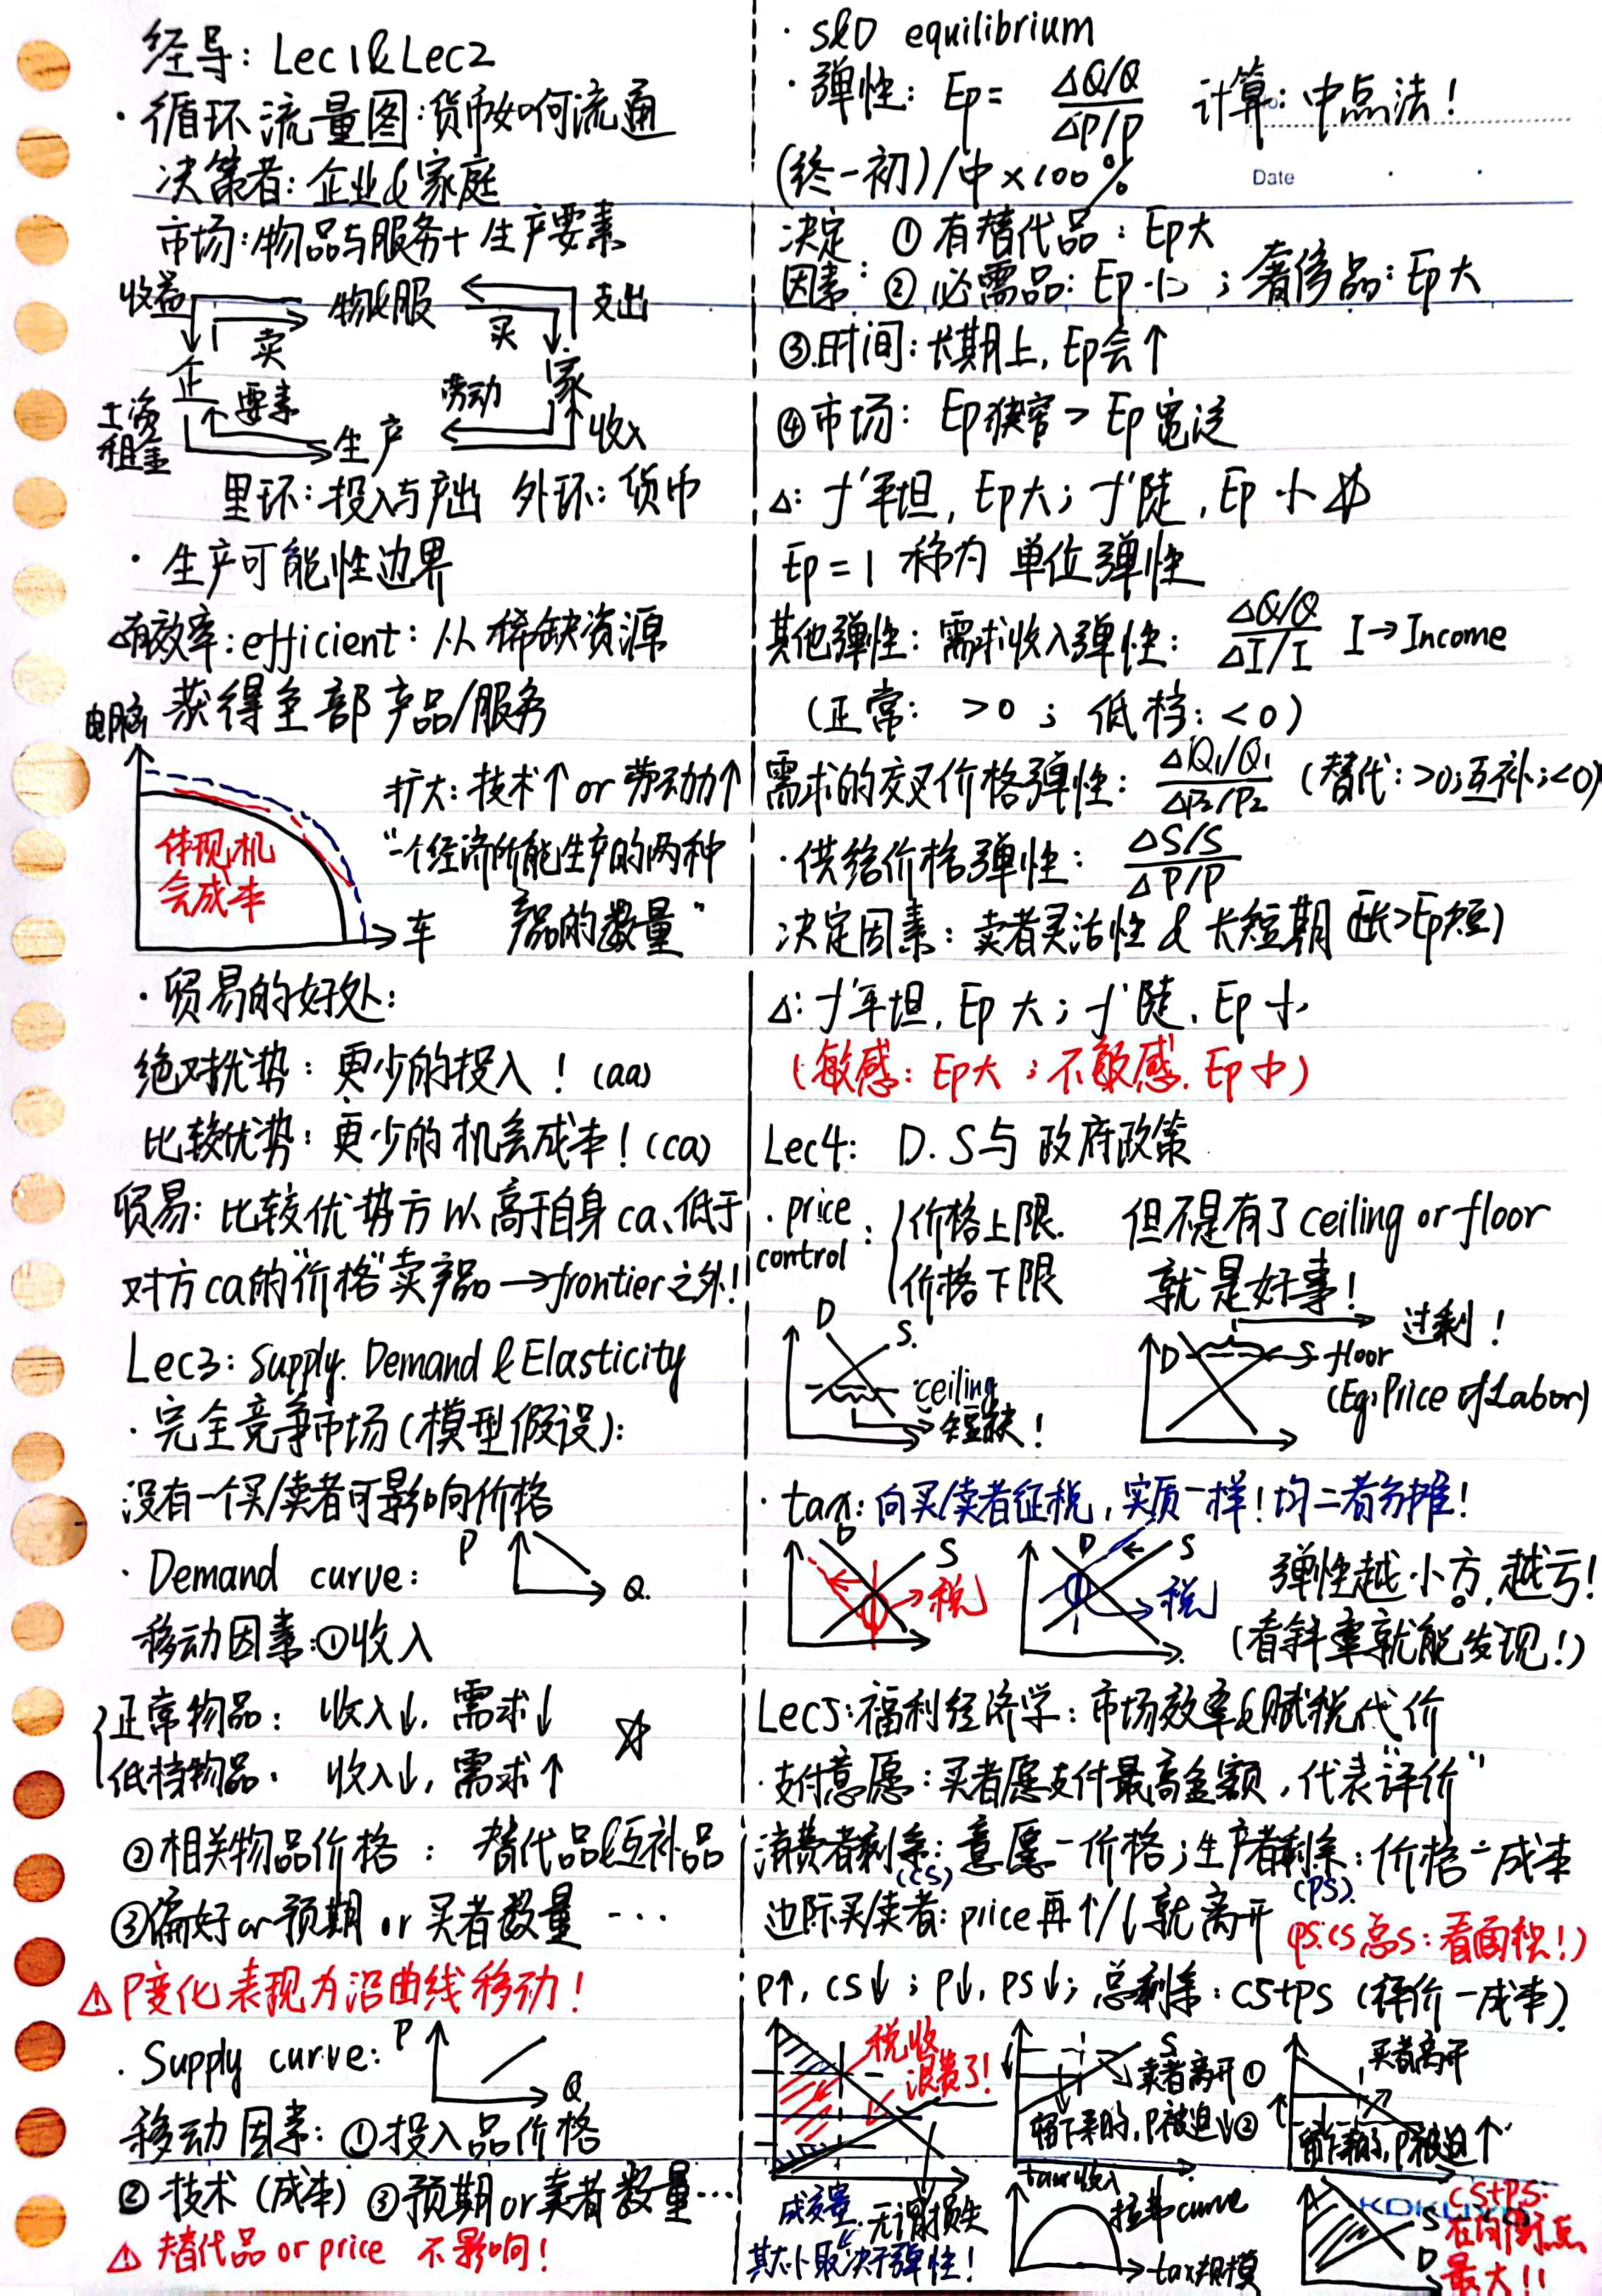 经导: Lec1&Lec2
· 循环流量图:货币如何流通
决策者: 企业&家庭
市场:物品与服务+生产要素
收益 物&服 支出
卖 买
企 家
工资 要素 劳动
租金 生产 收入
里环:投入与产出 外环: 货币
· 生产可能性边界
△有效率:efficient: 从稀缺资源
获得全部产品/服务
电脑
扩大:技术↑ or 劳动力↑
体现机会成本
"一个经济所能生产的两种
产品的数量"
车
· 贸易的好处:
绝对优势: 更少的投入!(aa)
比较优势: 更少的机会成本!(ca)
贸易: 比较优势方以高于自身ca、低于
对方ca的"价格"卖产品→frontier之外!
Lec3: Supply. Demand & Elasticity
· 完全竞争市场(模型假设):
没有一个买/卖者可影响价格
· Demand curve: P Q.
移动因素:①收入
正常物品: 收入↓, 需求↓
低档物品. 收入↓, 需求↑
②相关物品价格: 替代品&互补品
③偏好or预期 or 买者数量 …
⚠ P变化表现为沿曲线移动!
· Supply curve: P Q
移动因素: ①投入品价格
②技术(成本) ③预期or卖者数量…
⚠ 替代品 or price 不影响!
· S&D equilibrium
· 弹性: Ep= ΔQ/Q / ΔP/P 计算:中点法!
(终-初)/中×100%
Date
决定因素: ①有替代品: Ep大
②必需品: Ep小; 奢侈品: Ep大
③.时间:长期上, Ep会↑
④市场: Ep狭窄 > Ep宽泛
△: f'平坦, Ep大; f'陡, Ep小 ☆
Ep=1 称为 单位弹性
其他弹性: 需求收入弹性: ΔQ/Q / ΔI/I I→Income
(正常: >0; 低档: <0)
需求的交叉价格弹性: ΔQ₁/Q₁ / ΔP₂/P₂ (替代: >0;互补:<0)
· 供给价格弹性: ΔS/S / ΔP/P
决定因素: 卖者灵活性 & 长短期 (Ep长>Ep短)
△: f'平坦, Ep大; f'陡, Ep小
(敏感: Ep大; 不敏感. Ep小)
Lec4: D.S与 政府政策
· price control: 价格上限. 但不是有了ceiling or floor
价格下限 就是好事!
D S. ceiling 短缺!
D S floor 过剩!
(Eg:Price of Labor)
· tax: 向买/卖者征税, 实质一样! 均二者分摊!
D S 税
D S 税
弹性越小方, 越亏!
(看斜率就能发现!)
Lec5:福利经济学: 市场效率&赋税代价
· 支付意愿: 买者愿支付最高金额, 代表"评价"
消费者剩余: 意愿-价格; 生产者剩余: 价格-成本
(CS) (PS).
边际买/卖者: price再↑/↓就离开
(ps.cs总s: 看面积!)
P↑, CS↓; P↓, PS↓; 总剩余: CS+PS (评价-成本).
税收 浪费了!
成交量. 无谓损失
其大小取决于弹性!
S 卖者离开①
留下来的, P被迫↓②
买者离开
留下来的, P被迫↑
tax收入 拉弗curve
tax规模
KOKUYO
S D
CS+PS.
在均衡点
最大!!